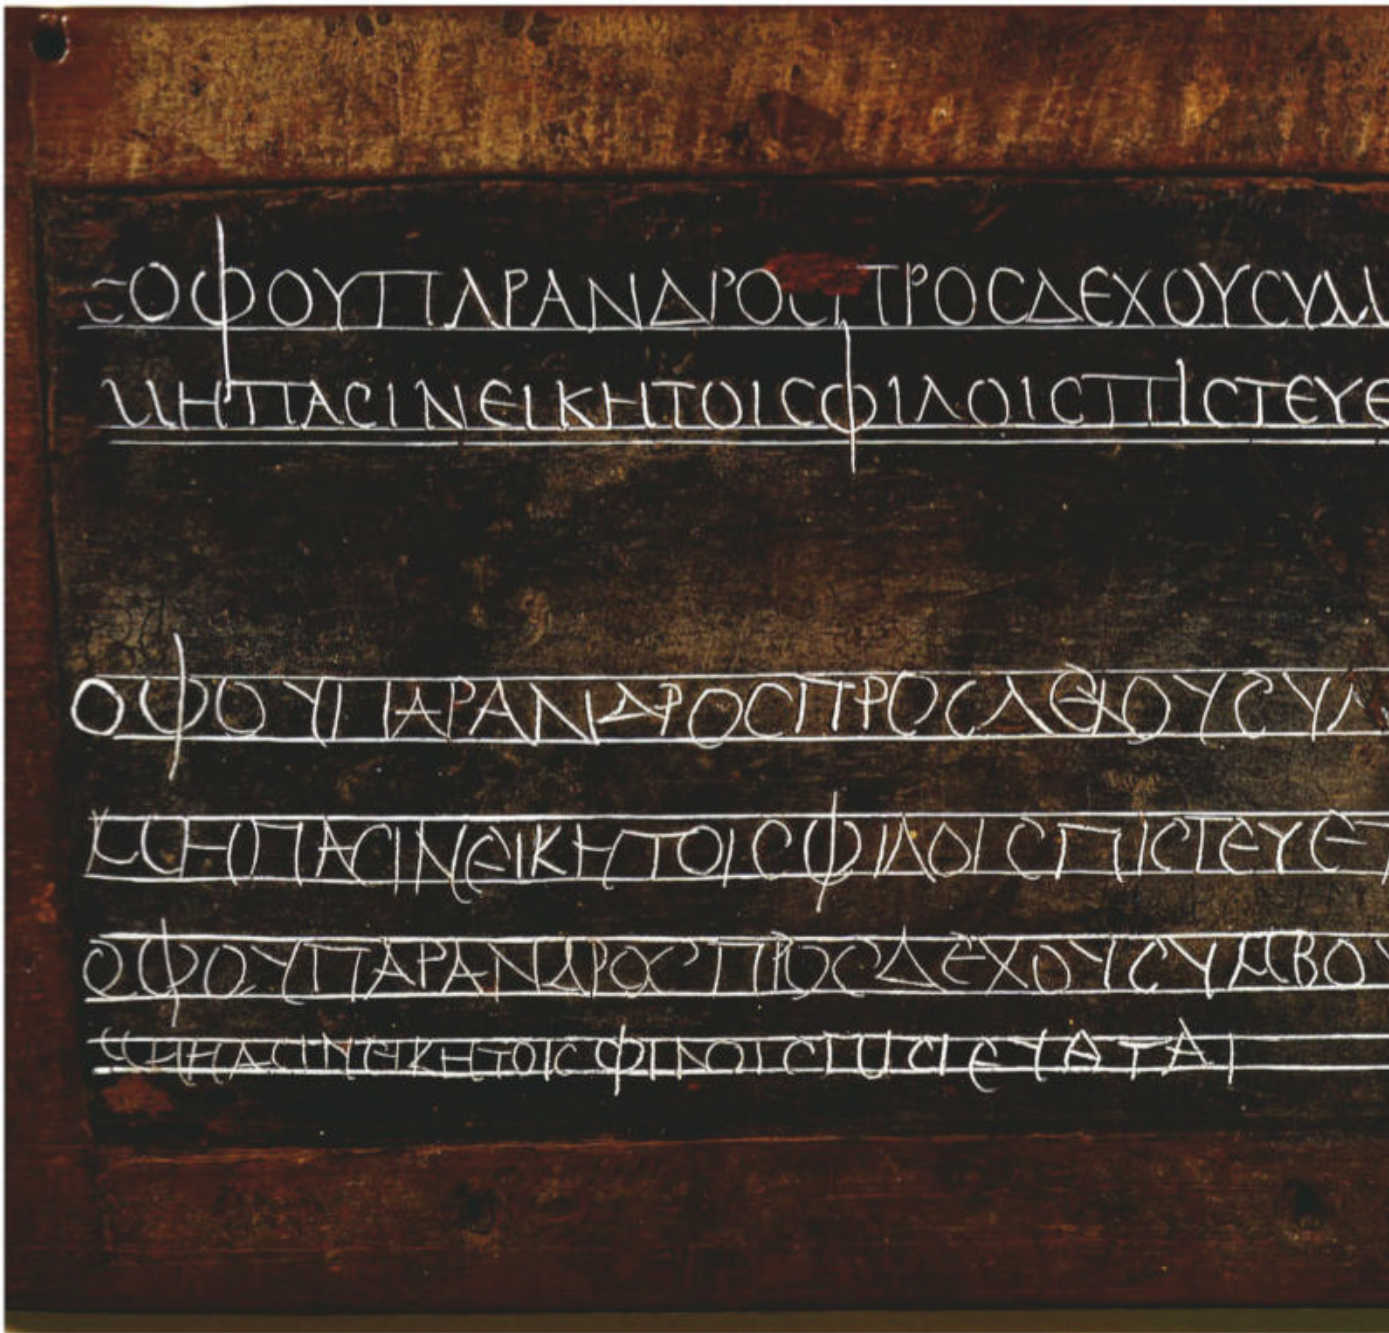 ϹΟΦΟΥΠΑΡΑΝΔΡΟϹΠΡΟϹΔΕΧΟΥϹΥΜ
ΜΗΠΑϹΙΝΕΙΚΗΤΟΙϹΦΙΛΟΙϹΠΙϹΤΕΥΕ
ΟΦΟΥΠΑΡΑΝΔΡΟϹΠΡΟϹΔΕΧΟΥϹΥΜ
ΜΗΠΑϹΙΝΕΙΚΗΤΟΙϹΦΙΛΟΙϹΠΙϹΤΕΥΕΤ
ΟΦΟΥΠΑΡΑΝΔΡΟϹΠΡΟϹΔΕΧΟΥϹΥΜΒΟΥ
ΜΗΠΑϹΙΝΕΙΚΗΤΟΙϹΦΙΛΟΙϹΠΙϹΤΕΥΑΤΑΙ